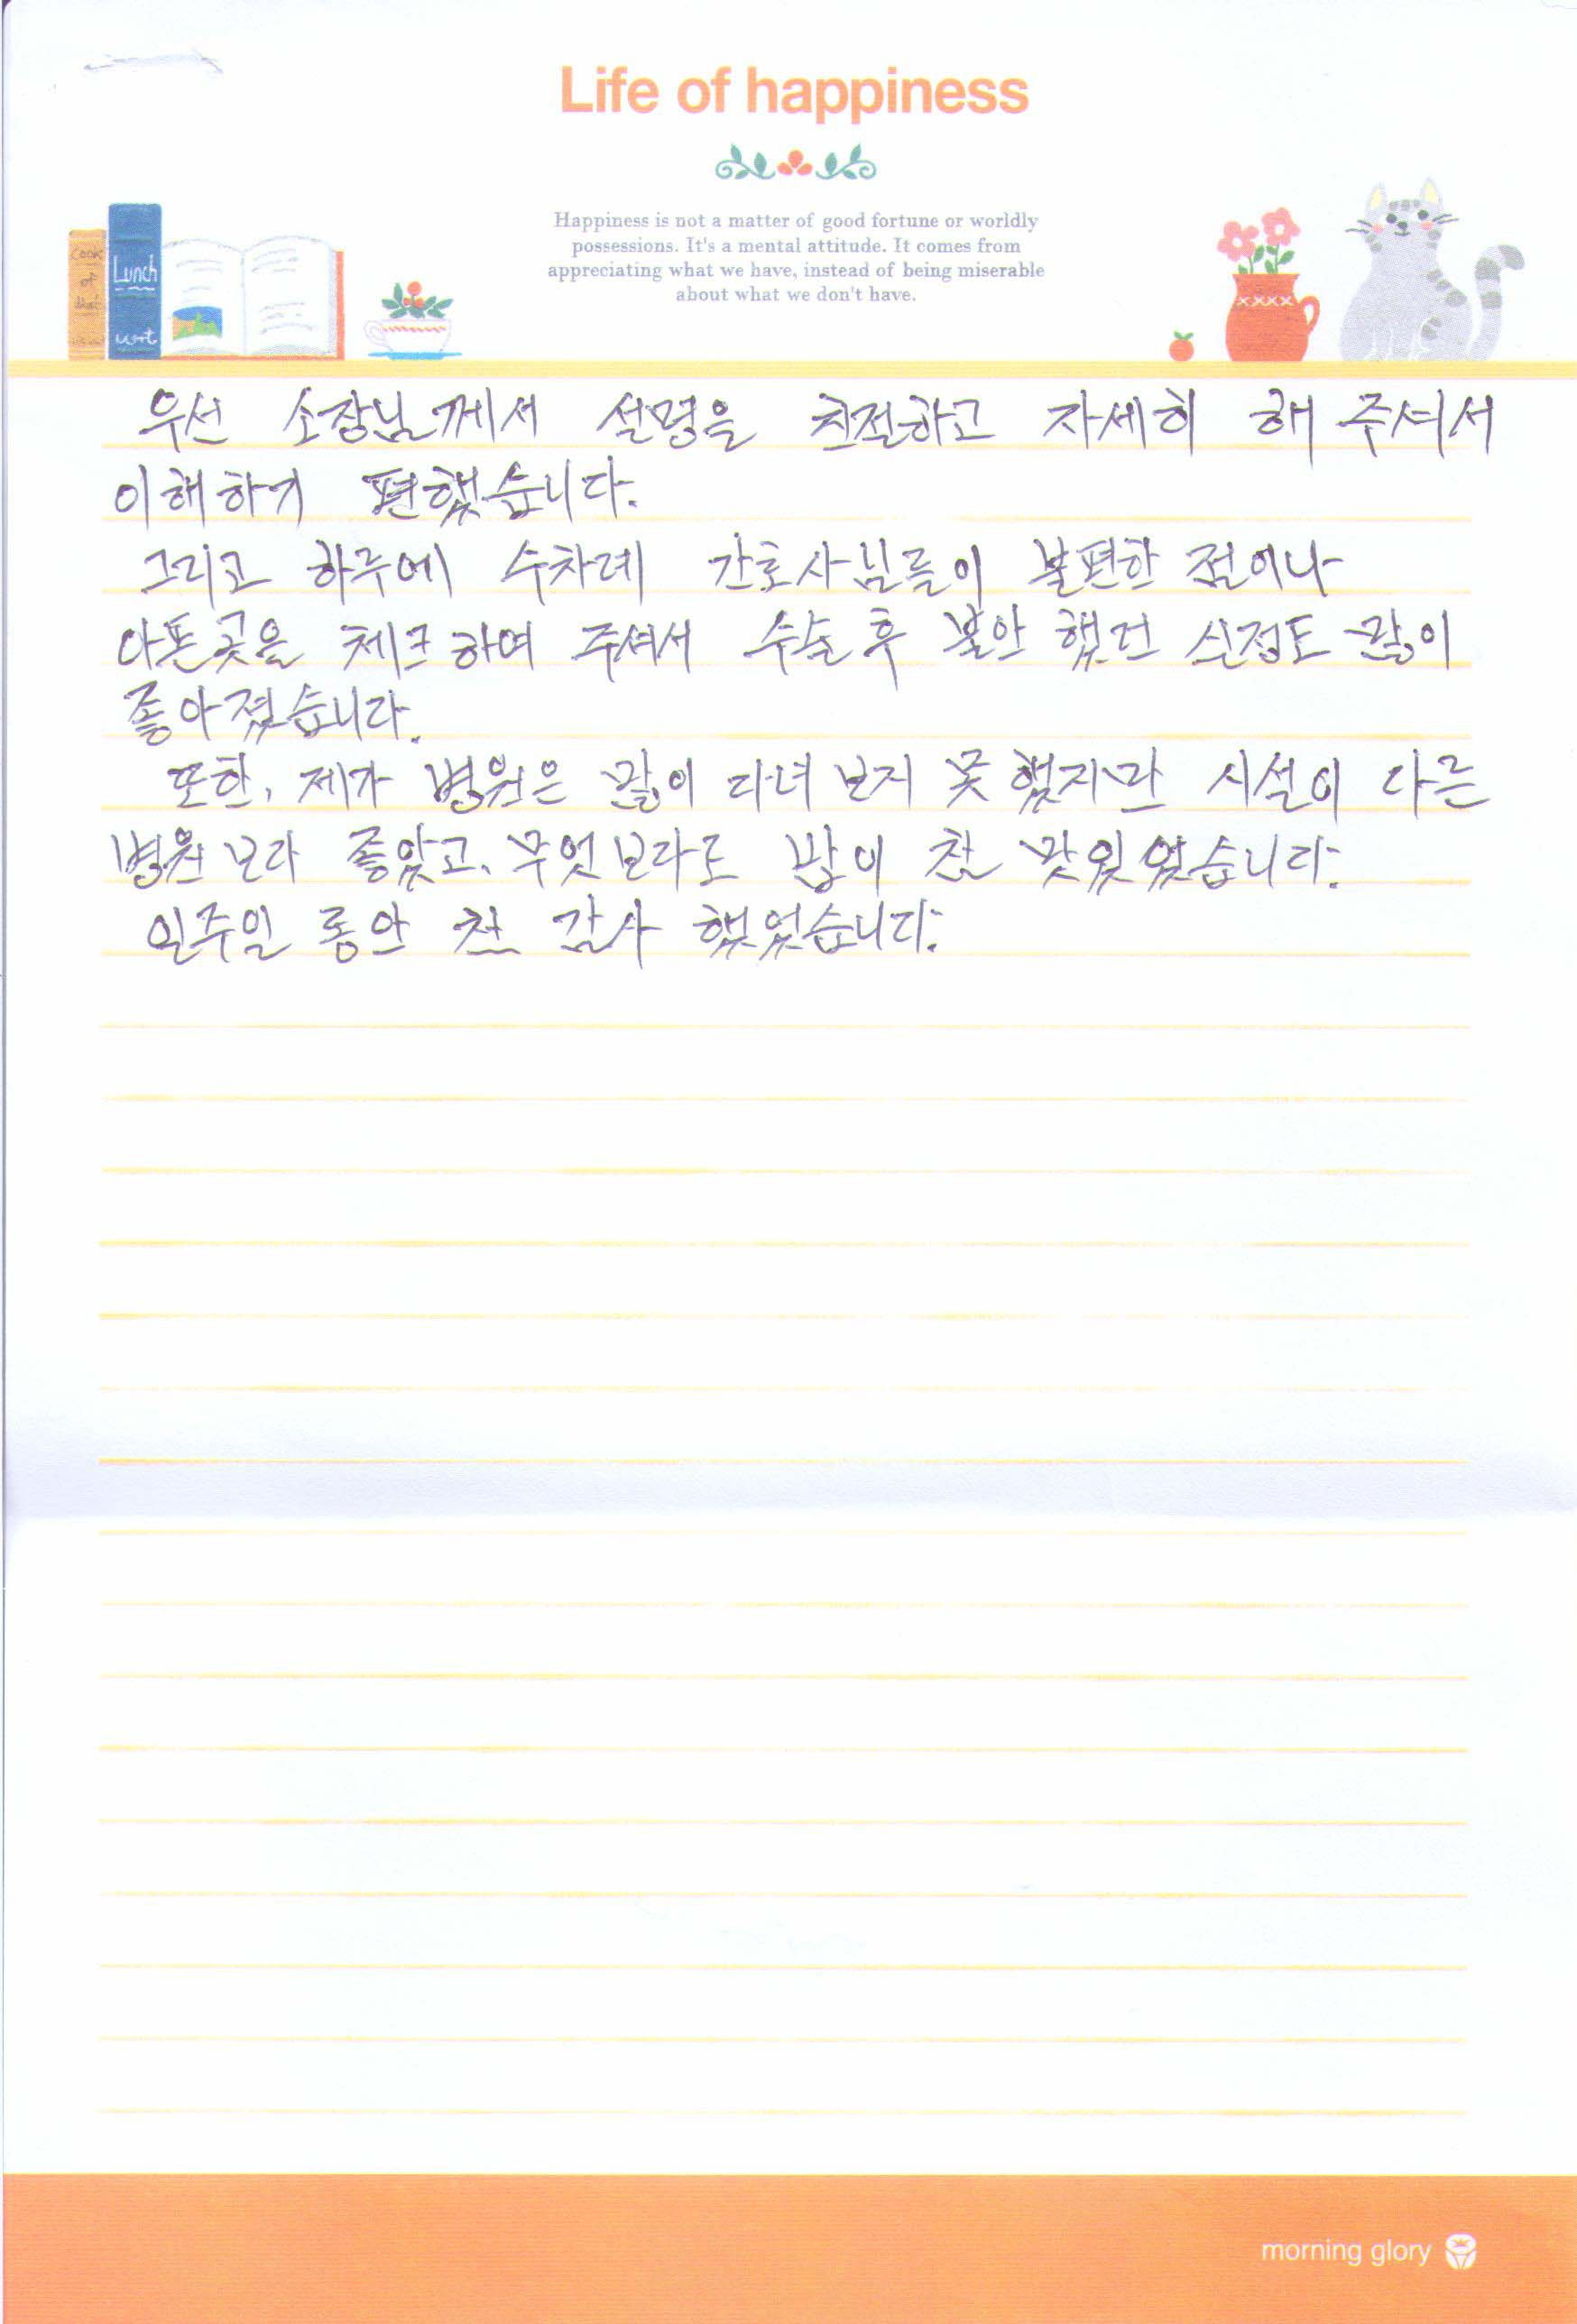 Life of happiness
Happiness is not a matter of good fortune or worldly
possessions. It's a mental attitude. It comes from
appreciating what we have, instead of being miserable
about what we don't have.
Cook
of
that
Lunch
우선 소장님께서 설명을 친절하고 자세히 해 주셔서
이해하기 편했습니다.
그리고 하루에 수차례 간호사님들이 불편한 점이나
아픈곳을 체크하여 주셔서 수술 후 불안 했던 심정도 많이
좋아졌습니다.
또한, 제가 병원은 많이 다녀 보지 못 했지만 시설이 다른
병원 보다 좋았고, 무엇보다도 밥이 참 맛있었습니다.
일주일 동안 참 감사 했었습니다.
morning glory